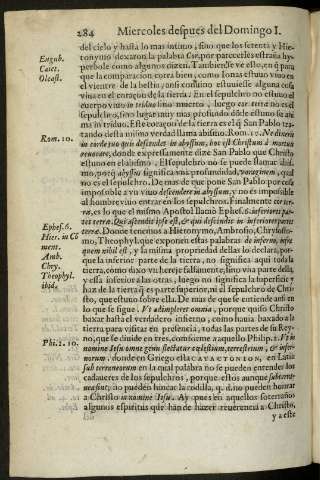 284 Miercoles despues del Domingo I.
del cielo y hasta lo mas intimo, sino que los setenta y Hie-
Engub.
Caiet.
Oleast.
ronymo dexaron la palabra Cor, por parecerles estraña hy-
perbole como algunos dizen. Tambien se ve esto, en q̃ para
que la comparacion corra bien, como Ionas estuuo viuo en
el vientre de la bestia, ansi conuino estuuiesse alguna cosa
viua en el coraçon de la tierra. En el sepulchro no estuuo el
cuerpo viuo in triduo sino muerto, luego cor terræ no es el
sepulcro, sino lugar muy mas profundo dõde estuuo su ani
ma in triduo. Este coraçon de la tierra es el q̃ San Pablo tra-
Rom. 10.
tando desta misma verdad llama abismo. Rom. 10. Ne dixeris
in corde tuo quis descendet in abyssum, hoc est Christum à mortuis
reuocare, donde expressamente dize San Pablo que Christo
estuuo en el abismo. El sepulchro no se puede llamar abis-
mo, porq̃ abyssus significa vna profundidad, voraginem, qual
no es el sepulchro. De mas de que pone San Pablo por cosa
impossible a vn viuo descendere in abyssum, y no es impossible
al hombre viuo entrar en los sepulchros. Finalmente cor ter-
ræ, es lo que el mismo Apostol llamò Ephes. 6. inferiores par-
Ephes. 6.
Hier. in Cõ
ment.
Amb.
Chry.
Theophyl.
ibid.
tes terræ. Qui ascendit ipse est, & qui descendit in inferiores partes
terræ. Donde tenemos a Hieronymo, Ambrosio, Chrysosto-
mo, Theophylo, que exponen estas palabras de inferno, infra
quem nihil est, y la misma propriedad dellas lo declara, por-
que la inferior parte de la tierra, no significa aqui toda la
tierra, como
sino vna parte della,
y essa inferior a las otras, luego no significa la superficie y
haz de la tierra q̃ es parte superior, ni el sepulchro de Chri-
sto, que estuuo sobre ella. De mas de que se entiende ansi en
lo que se sigue. Vt adimpleret omnia, porque quiso Christo
baxar hasta el verdadero infierno, como hauia baxado a la
tierra para visitar en presencia, todas las partes de su Rey-
Phi. 2. 10.
no, que se diuide en tres, conforme a aquello Philip. 2. Vt in
nomine Iesu omne genu flectatur cœlestium, terrestrium, & infer-
norum, donde en Griego esta
en Latin
sub terreneorum en la qual palabra no se pueden entender los
cadaueres de los sepulchros, porque estos aunque subterra-
nea sint, no pueden hincar la rodilla, q. d. no pueden honrar
a Christo in nomine Iesu. Ay pues en aquellos soterraños
algunos espiritus que han de hazer reuerencia a Christo,
y a este